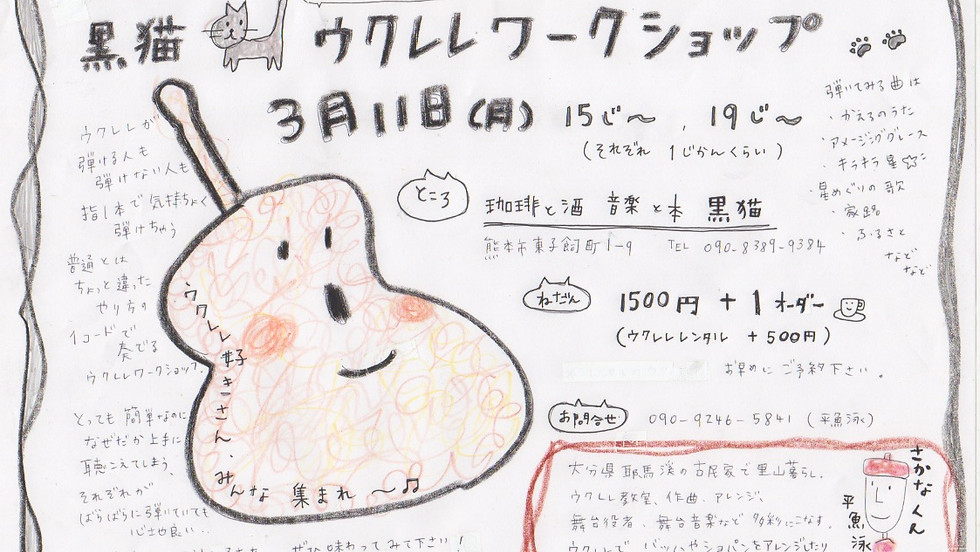 黒猫 ウクレレワークショップ
3月11日(月) 15じ〜 、19じ〜
(それぞれ 1じかんくらい)
ところ
珈琲と酒 音楽と本 黒猫
熊本市東子飼町1-9 TEL 090-8389-9384
ねだん
1500円 + 1オーダー
(ウクレレレンタル +500円)
お早めにご予約下さい。
お問合せ 090-9246-5841 (平魚泳)
弾いてみる曲は
・かえるのうた
・アメージンググレース
・キラキラ星
・星めぐりの歌
・家路
・ふるさと
などなど
ウクレレが
弾ける人も
弾けない人も
指1本で気持ちよく
弾けちゃう
普通とは
ちょっと違った
やり方の
1コードで
奏でる
ウクレレワークショップ。
とっても簡単なのに
なぜだか上手に
聴こえてしまう。
それぞれが
ばらばらに弾いていても
心地良い…
ぜひ味わってみて下さい!
ウクレレ好きさん・みんな 集まれ 〜♫
大分県耶馬溪の古民家で里山暮らし。
ウクレレ教室、作曲、アレンジ、
舞台役者、舞台音楽など多彩にこなす。
ウクレレでバッハやショパンをアレンジしたり
さかなくん
平魚泳